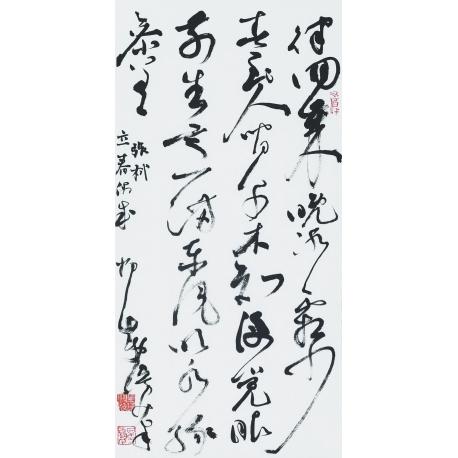 律回歲晚冰霜少
春到人間草木知便覺眼
前生意滿東風吹水綠
參差
張栻
立春偶成